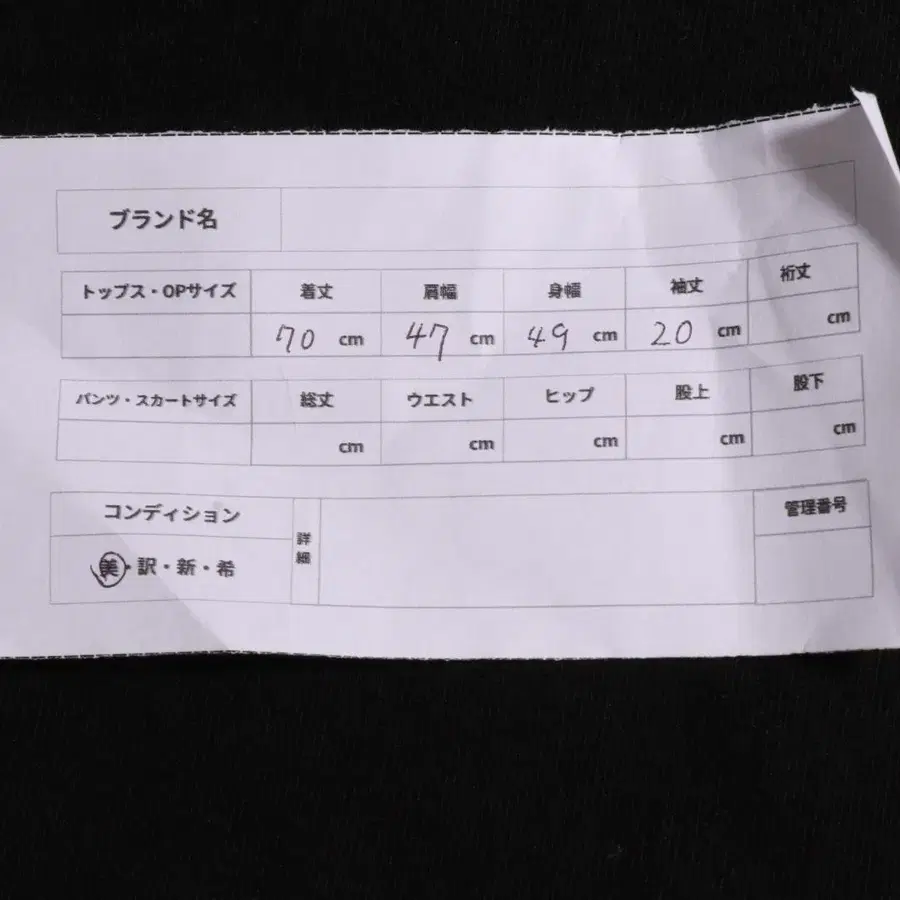 ブランド名
トップス・OPサイズ 着丈 肩幅 身幅 袖丈 裄丈
70 cm 47 cm 49 cm 20 cm cm
パンツ・スカートサイズ 総丈 ウエスト ヒップ 股上 股下
cm cm cm cm cm
コンディション 詳細 管理番号
美・訳・新・希